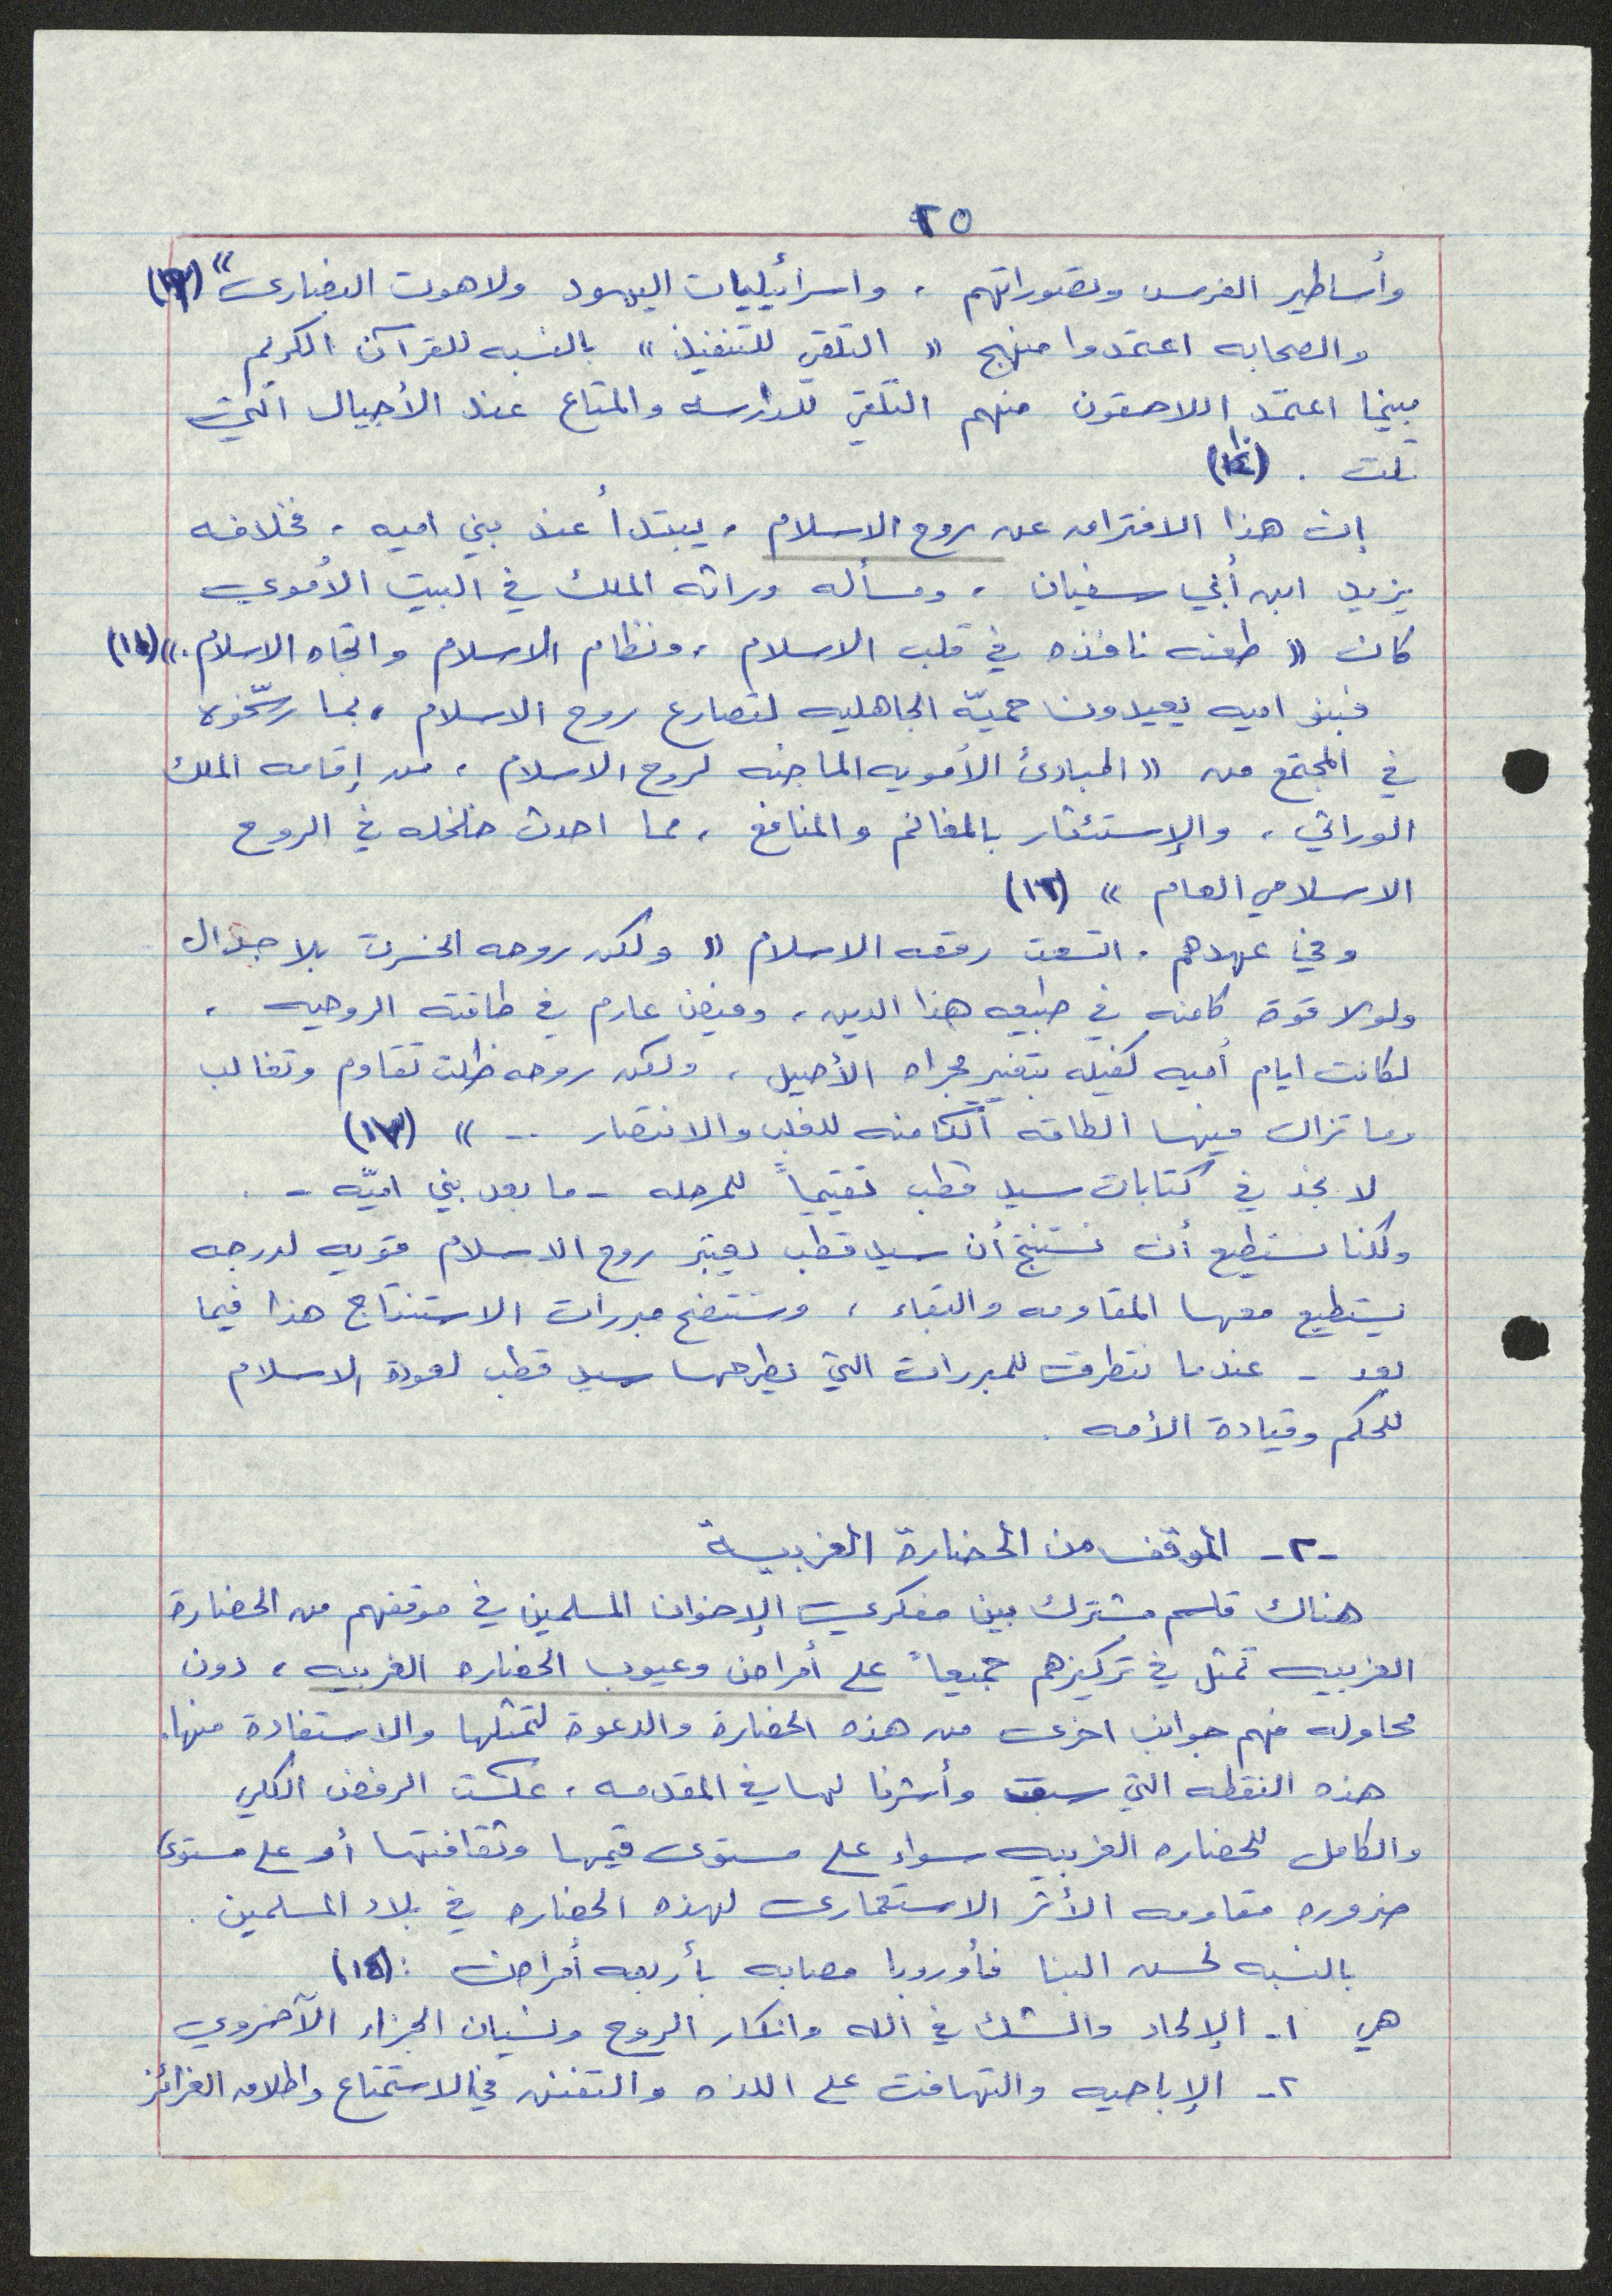 ٢٥
وأساطير الفرس وتصوراتهم ، واسرائيليات اليهود ولاهوت النصارى "
والصحابه اعتمدوا منهج « التلقي للتنفيذ » بالنسبه للقرآن الكريم
بينما اعتمد اللاحقون منهم التلقي للدارسه والمتاع عند الأجيال التي
تلت .
إن هذا الافتراق عن روح الاسلام ، يبتدأ عند بني اميه ، فخلافه
يزيد ابن أبي سفيان ، ومسأله وراثه الملك في البيت الأموي
كان « طعنه نافذه في قلب الاسلام ، ونظام الاسلام واتجاه الاسلام . »
فبنو اميه يعيدون حميّة الجاهليه لتصارع روح الاسلام ، بما رسّخوه
في المجتمع من « المبادئ الأمويه الماجنه لروح الاسلام ، من إقامه الملك
الوراثي ، والإستئثار بالمغانم والمنافع ، مما احدث خلخله في الروح
الاسلامي العام » (١٢)
وفي عهدهم ، اتسعت رقعه الاسلام « ولكن روحه انحسرت بلا جدال
ولولا قوة كامنه في طبيعه هذا الدين ، وفيض عارم في طاقته الروحيه ،
لكانت ايام أميه كفيله بتغيير مجراه الأصيل ، ولكن روحه ظلت تقاوم وتغالب
وما تزال فيها الطاقه الكامنه للغلب والانتصار .. » (١٣)
لا نجد في كتابات سيد قطب تقييماً للمرحله - ما بعد بني اميّه - .
ولكنا نستطيع أن نستنتج أن سيد قطب يعتبر روح الاسلام قويه لدرجه
يستطيع معها المقاومه والبقاء ، وستتضح مبررات الاستنتاج هذا فيما
بعد - عندما نتطرق للمبررات التي يطرحها سيد قطب لعودة الاسلام
للحكم وقيادة الأمه .
-٢- الموقف من الحضارة الغربية
هناك قاسم مشترك بين مفكري الإخوان المسلمين في موقفهم من الحضارة
الغربيه تمثل في تركيزهم جميعاً على أمراض وعيوب الحضاره الغربيه ، دون
محاوله فهم جوانب اخرى من هذه الحضارة والدعوة لتمثلها والاستفادة منها .
هذه النقطه التي سبق وأشرنا لها في المقدمه ، عكست الرفض الكلي
والكامل للحضاره الغربيه سواء على مستوى قيمها وثقافتها أو على مستوى
ضروره مقاومه الأثر الاستعمارى لهذه الحضاره في بلاد المسلمين .
بالنسبه لحسن البنا فأوروبا مصابه بأربعه أمراض :
هي ١- الإلحاد والشك في الله وانكار الروح ونسيان الجزاء الآخروي
٢- الإباحيه والتهافت على اللذه والتفنن في الاستمتاع واطلاق الغرائز